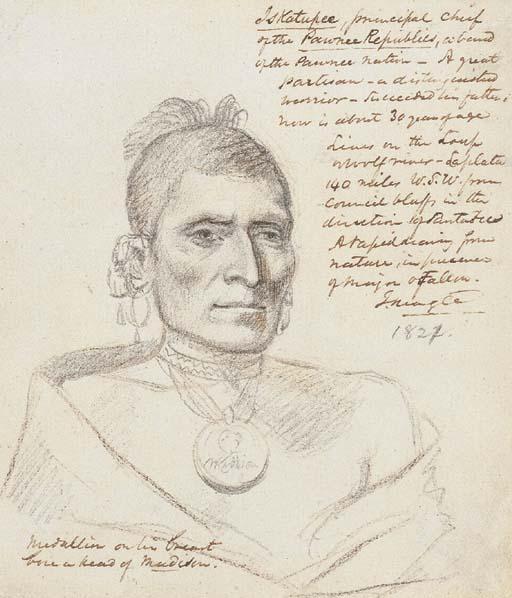 Iskatupee, principal chief
of the Pawnee Republics, a band
of the Pawnee nation – A great
partisan – a distinguished
warrior – Succeeded his father;
now is about 30 years of age
Lives on the Loup
or Wolf river – Laplate
140 miles W.S.W. from
Council bluffs, in the
direction of Santa Fee
A rapid drawing from
nature, in presence
of Major O Fallon.
182
Madison
Medallion on his breast
bore a head of Madison.